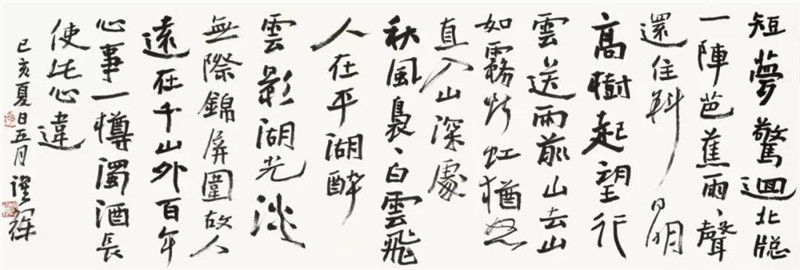 短夢驚迴北牕
一陣芭蕉雨、聲
還住斜日明
高樹起望行
雲送雨前山去山
如霧断虹猶怒
直入山深處
秋風裊、白雲飛
人在平湖醉
雲影湖光淡
無際錦屏圍故人
遠在千山外百年
心事一樽濁酒長
使此心違
己亥夏日五月